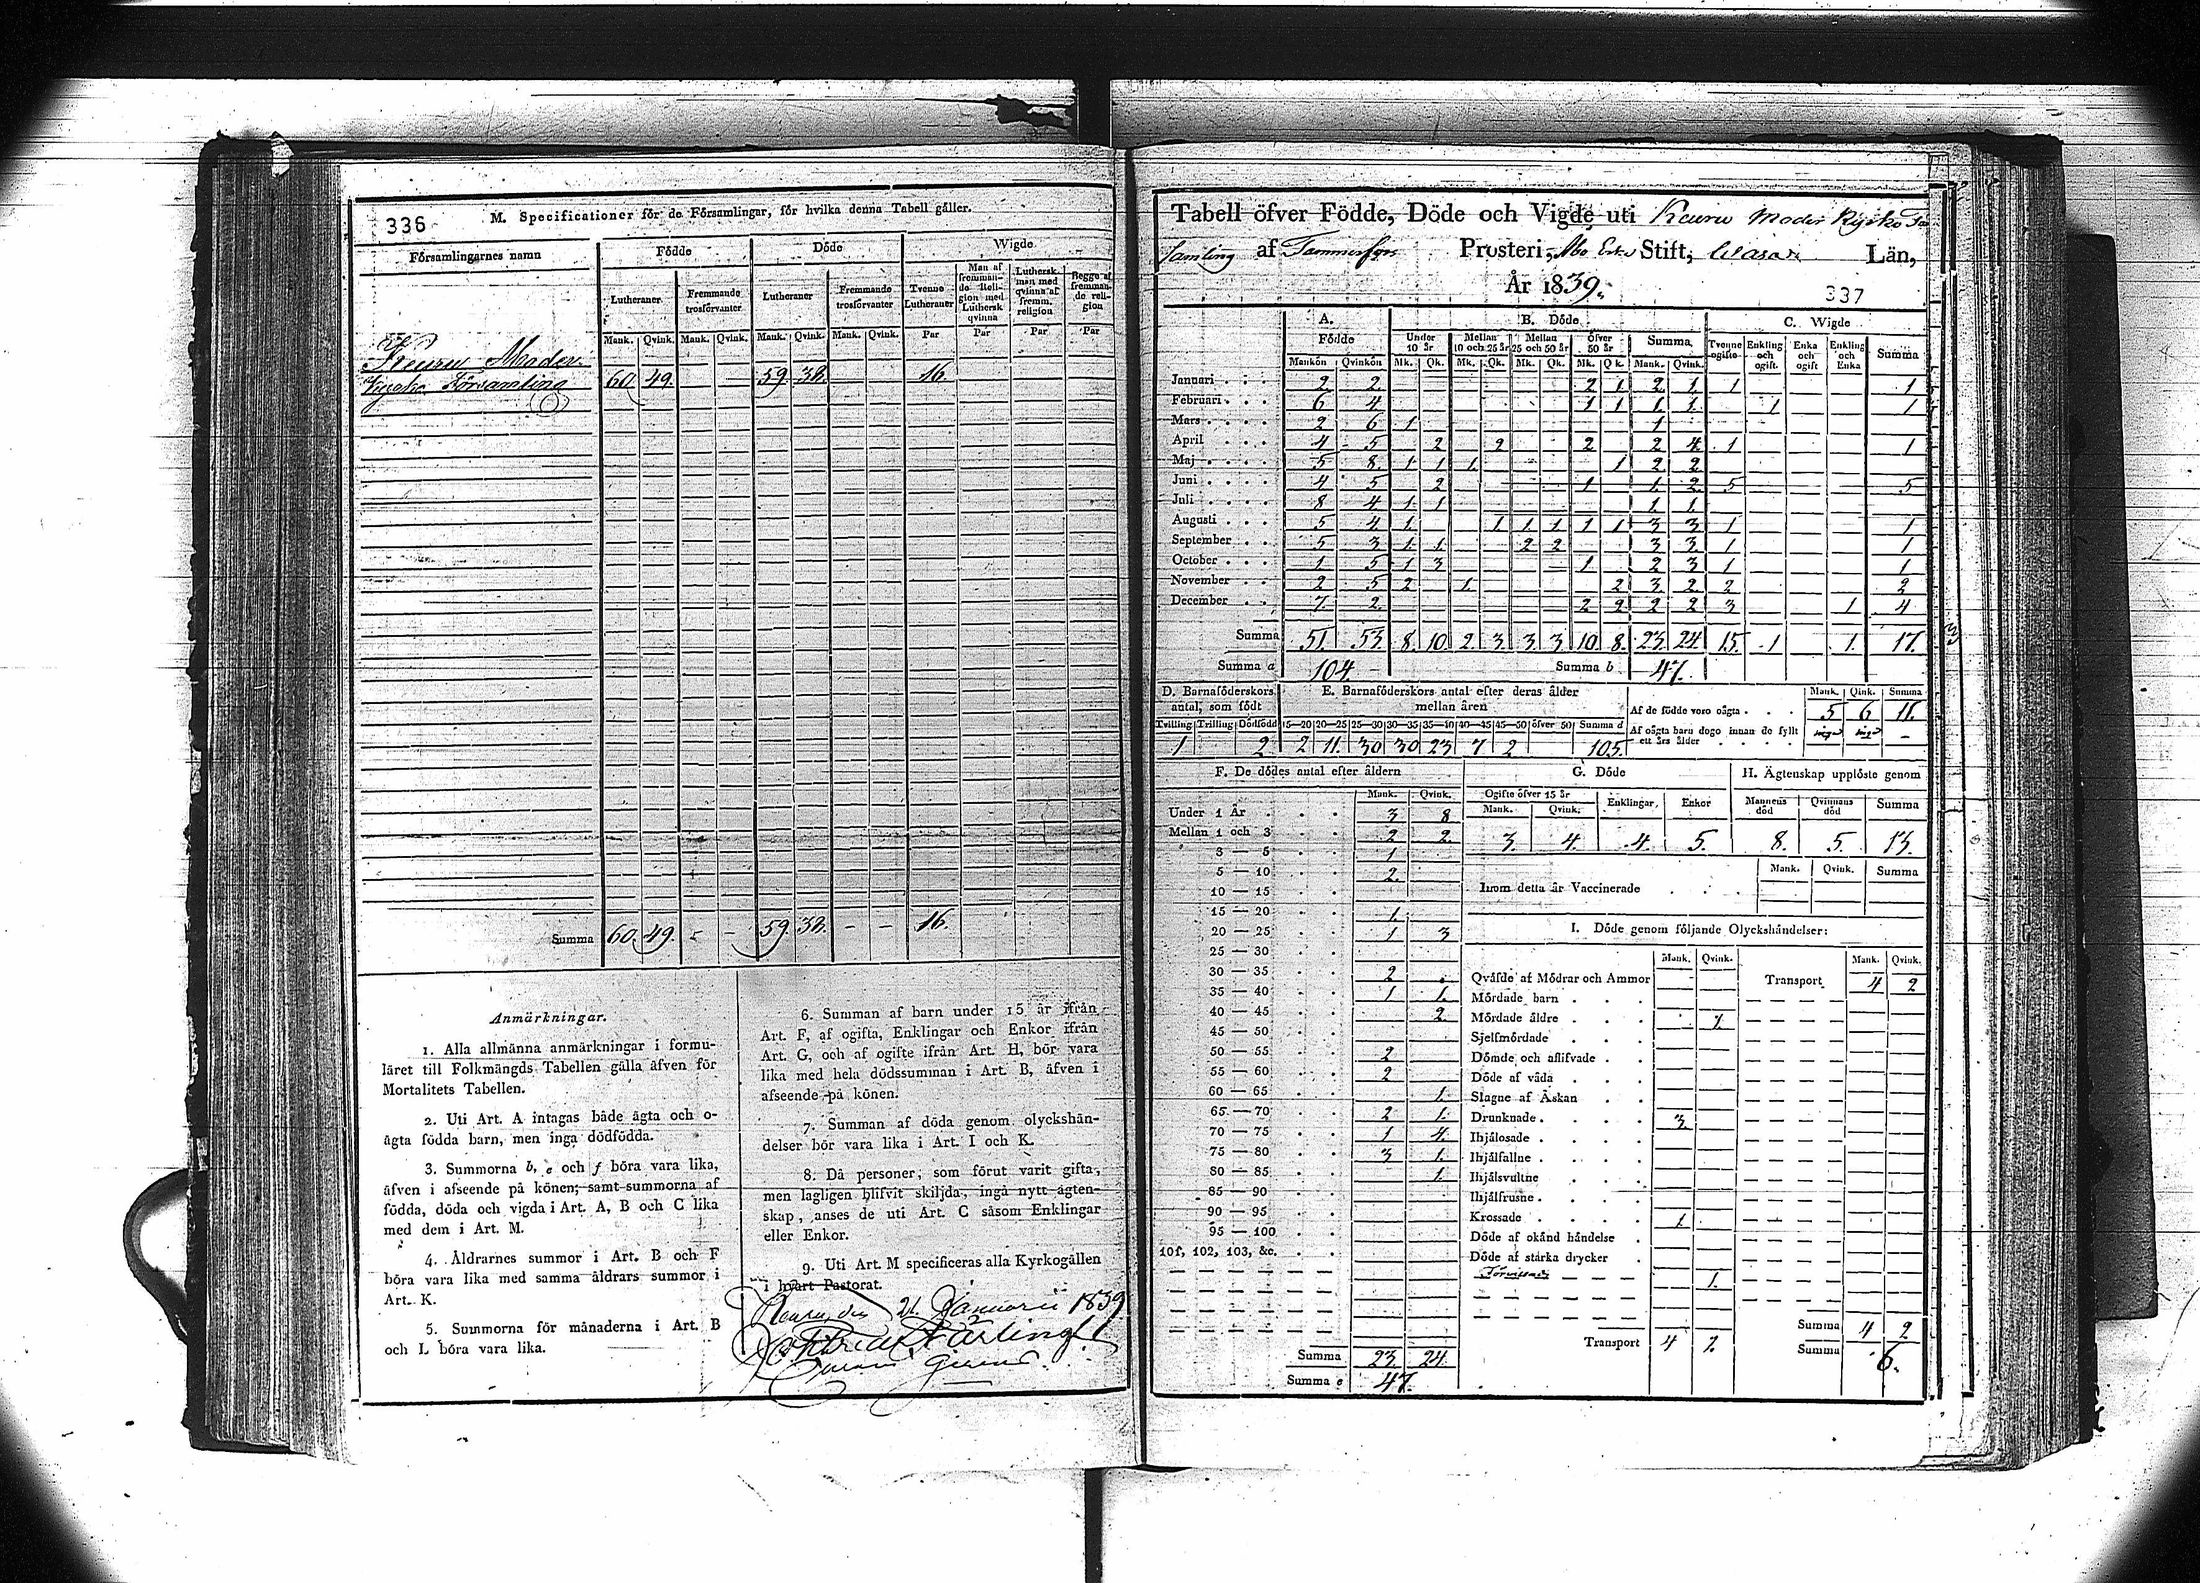 336
M. Specificationer för de Församlingar, för hvilka denna Tabell gäller.
Församlingarnes namn
Födde Döde Wigde
Lutheraner Fremmande trosförvanter Lutheraner Fremmande trosförvanter Tvenne Lutheraner Man af fremmande Religion med Luthersk qvinna Luthersk man med qvinna af fremm. religion Begge af fremmande religion
Mank. Qvink. Mank. Qvink. Mank. Qvink. Mank. Qvink. Par Par Par Par
Keuru Moder
Kyrko Församling 60 49. 59. 38. 16.
Summa 60 49. - - 59. 38. - - 16.
Anmärkningar.
1. Alla allmänna anmärkningar i formu-
läret till Folkmängds Tabellen gälla äfven för
Mortalitets Tabellen.
2. Uti Art. A intagas både ägta och o-
ägta födda barn, men inga dödfödda.
3. Summorna b, e och f böra vara lika,
äfven i afseende på könen; samt summorna af
födda, döda och vigda i Art. A, B och C lika
med dem i Art. M.
4. Åldrarnes summor i Art. B och F
böra vara lika med samma åldrars summor i
Art. K.
5. Summorna för månaderna i Art. B
och L böra vara lika.
6. Summan af barn under 15 år ifrån
Art. F, af ogifta, Enklingar och Enkor ifrån
Art. G, och af ogifte ifrån Art. H, bör vara
lika med hela dödssumman i Art. B, äfven i
afseende på könen.
7. Summan af döda genom olyckshän-
delser bör vara lika i Art. I och K.
8. Då personer, som förut varit gifta,
men lagligen blifvit skiljda, ingå nytt ägten-
skap, anses de uti Art. C såsom Enklingar
eller Enkor.
9. Uti Art. M specificeras alla Kyrkogällen
i hvart Pastorat.
Keuru, den 21. Januarii 1839
Tabell öfver Födde, Döde och Vigde uti Keuru Moder Kyrko För
samling af Tammerfors Prosteri, Åbo Erke Stift, Wasa Län,
År 1839.
337
A. Födde B. Döde C. Wigde
Under 10 år Mellan 10 och 25 år Mellan 25 och 50 år Öfver 50 år Summa Tvenne ogifte Enkling och ogift. Enka och ogift Enkling och Enka Summa
Mankön Qvinkön Mk. Qk. Mk. Qk. Mk. Qk. Mk. Qk. Mank. Qvink.
Januari 2. 2. 2 1 2. 1. 1 1
Februari 6 4 1 1 1. 1. 1 1.
Mars 2 6 1 1
April 4 5 2 2 2 2 4. 1 1
Maj 5 8. 1 1 1. 1 2 2
Juni 4 5 2 1 1. 2. 5 5
Juli 8 4 1 1 1. 1.
Augusti 5 4 1. 1 1 1 1 1 3 3 1 1
September 5 3 1. 1. 2 2 3 3. 1 1
October 1 5 1 3 1. 2 3 1 1
November 2 5 2 1. 2 3 2 2 2
December 7. 2. 2 2 2 2 3 1 4
Summa 51. 53 8. 10. 2. 3. 3. 3 10. 8. 23. 24. 15. 1 1. 17.
Summa a 104. Summa b 47.
D. Barnaföderskors antal, som födt E. Barnaföderskors antal efter deras ålder mellan åren
Tvilling Trilling Dödfödd 15—20 20—25 25—30 30—35 35—40 40—45 45—50 öfver 50 Summa d
1 2 2 11. 30 30 23 7 2 105.
Mank. Qink. Summa
Af de födde voro oägta 5 6 11.
Af oägta barn dogo innan de fyllt ett års ålder inga inga -
F. De dödes antal efter åldern
Mank. Qvink.
Under 1 År 3 8
Mellan 1 och 3 2 2.
3 — 5 1
5 — 10 2.
10 — 15
15 — 20 1.
20 — 25 1 3
25 — 30
30 — 35 2
35 — 40 1 1.
40 — 45 2.
45 — 50
50 — 55 2
55 — 60 2
60 — 65 1.
65 — 70 2 1.
70 — 75 1 4.
75 — 80 3 1.
80 — 85 1.
85 — 90
90 — 95
95 — 100
101, 102, 103, &c.
Summa 23 24.
Summa e 47.
G. Döde
Ogifte öfver 15 år Enklingar Enkor
Mank. Qvink.
3. 4. 4. 5.
H. Ägtenskap upplöste genom
Mannens död Qvinnans död Summa
8. 5. 13.
Mank. Qvink. Summa
Inom detta år Vaccinerade
I. Döde genom följande Olyckshändelser:
Mank. Qvink. Mank. Qvink.
Qväfde af Mödrar och Ammor Transport 4 2
Mördade barn
Mördade äldre 1
Sjelfmördade
Dömde och aflifvade
Döde af våda
Slagne af Åskan
Drunknade 3
Ihjälosade
Ihjälfallne
Ihjälsvultne
Ihjälfrusne
Krossade 1
Döde af okänd händelse
Döde af starka drycker
1.
Summa 4 2
Transport 4 2. Summa 6.